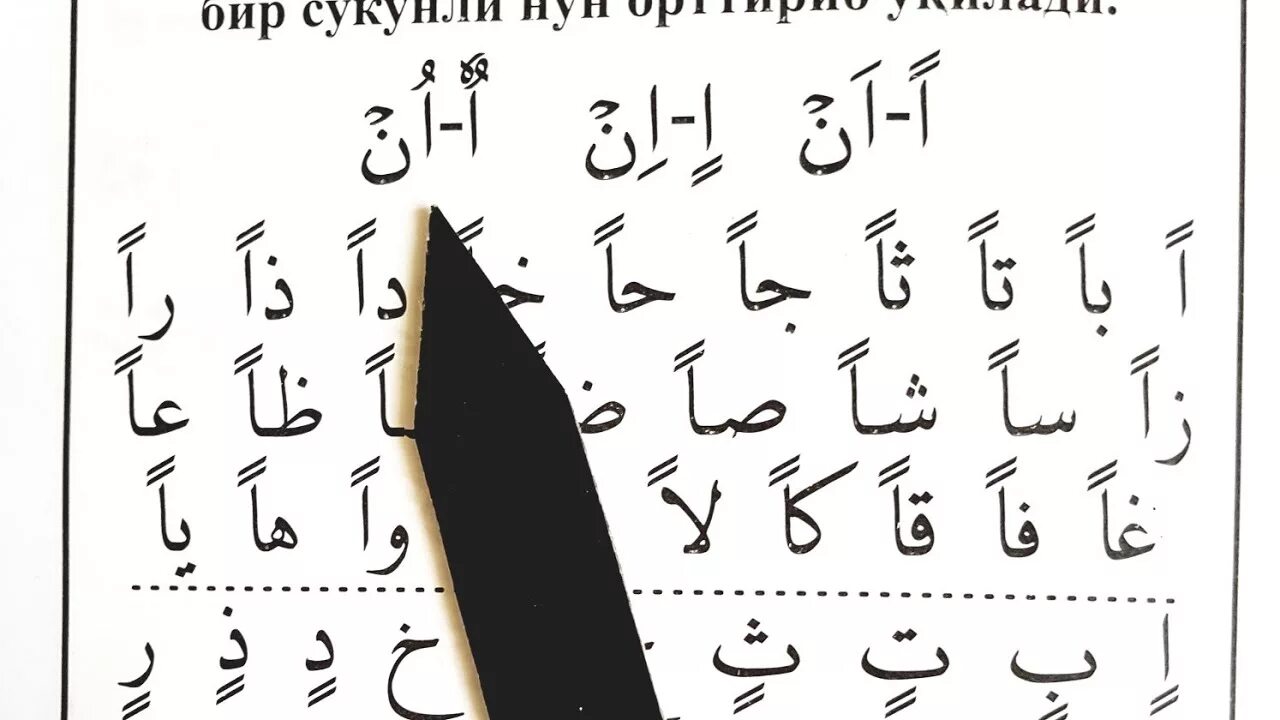 бир сукунли нун орттириб уқилади.
اً-اَنۡ اٍ-اِنۡ اٌ-اُنۡ
اً باً تاً ثاً جاً حاً داً ذاً راً
زاً ساً شاً صاً ظاً عاً
غاً فاً قاً كاً لاً واً هاً ياً
اٍ بٍ تٍ ثٍ دٍ ذٍ رٍ